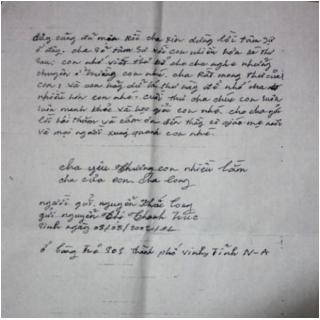 đây cũng đã muộn rồi cha xin dừng lời tâm sự
ở đây. cha sẽ tâm sự với con nhiều hơn ở thư
sau; con nhớ viết thư về cho cha nghe những
chuyện ở trường con nhé. cha rất mong thư của
con; và con hãy dữ lá thư này để nhớ cha
nhiều hơn con nhé. cuối thư cha chúc con luôn
luôn mạnh khỏe và học giỏi con nhé. cho cha gửi
lời hỏi thăm và cảm ơn đến thầy cô giáo mẹ nuôi
và mọi người xung quanh con nhé.
cha yêu thương con nhiều lắm
cha của con. cha long
người gửi. nguyễn khắc long
gửi nguyễn thị thanh trúc
sinh ngày
ở làng trẻ SOS thành phố vinh, Tỉnh N-A